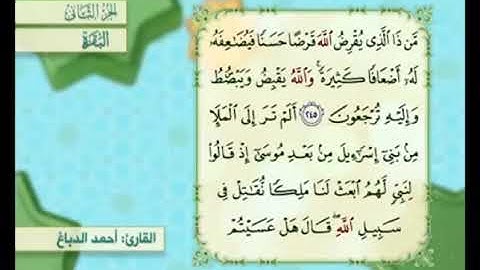 الجزء الثاني
البقرة
مَّن ذَا ٱلَّذِى يُقْرِضُ ٱللَّهَ قَرْضًا حَسَنًا فَيُضَٰعِفَهُۥ
لَهُۥٓ أَضْعَافًا كَثِيرَةً ۚ وَٱللَّهُ يَقْبِضُ وَيَبْصُۜطُ
وَإِلَيْهِ تُرْجَعُونَ ٢٤٥ أَلَمْ تَرَ إِلَى ٱلْمَلَإِ
مِنۢ بَنِىٓ إِسْرَٰٓءِيلَ مِنۢ بَعْدِ مُوسَىٰٓ إِذْ قَالُوا۟
لِنَبِىٍّ لَّهُمُ ٱبْعَثْ لَنَا مَلِكًا نُّقَٰتِلْ فِى
سَبِيلِ ٱللَّهِ ۖ قَالَ هَلْ عَسَيْتُمْ
القارئ: أحمد الدباغ